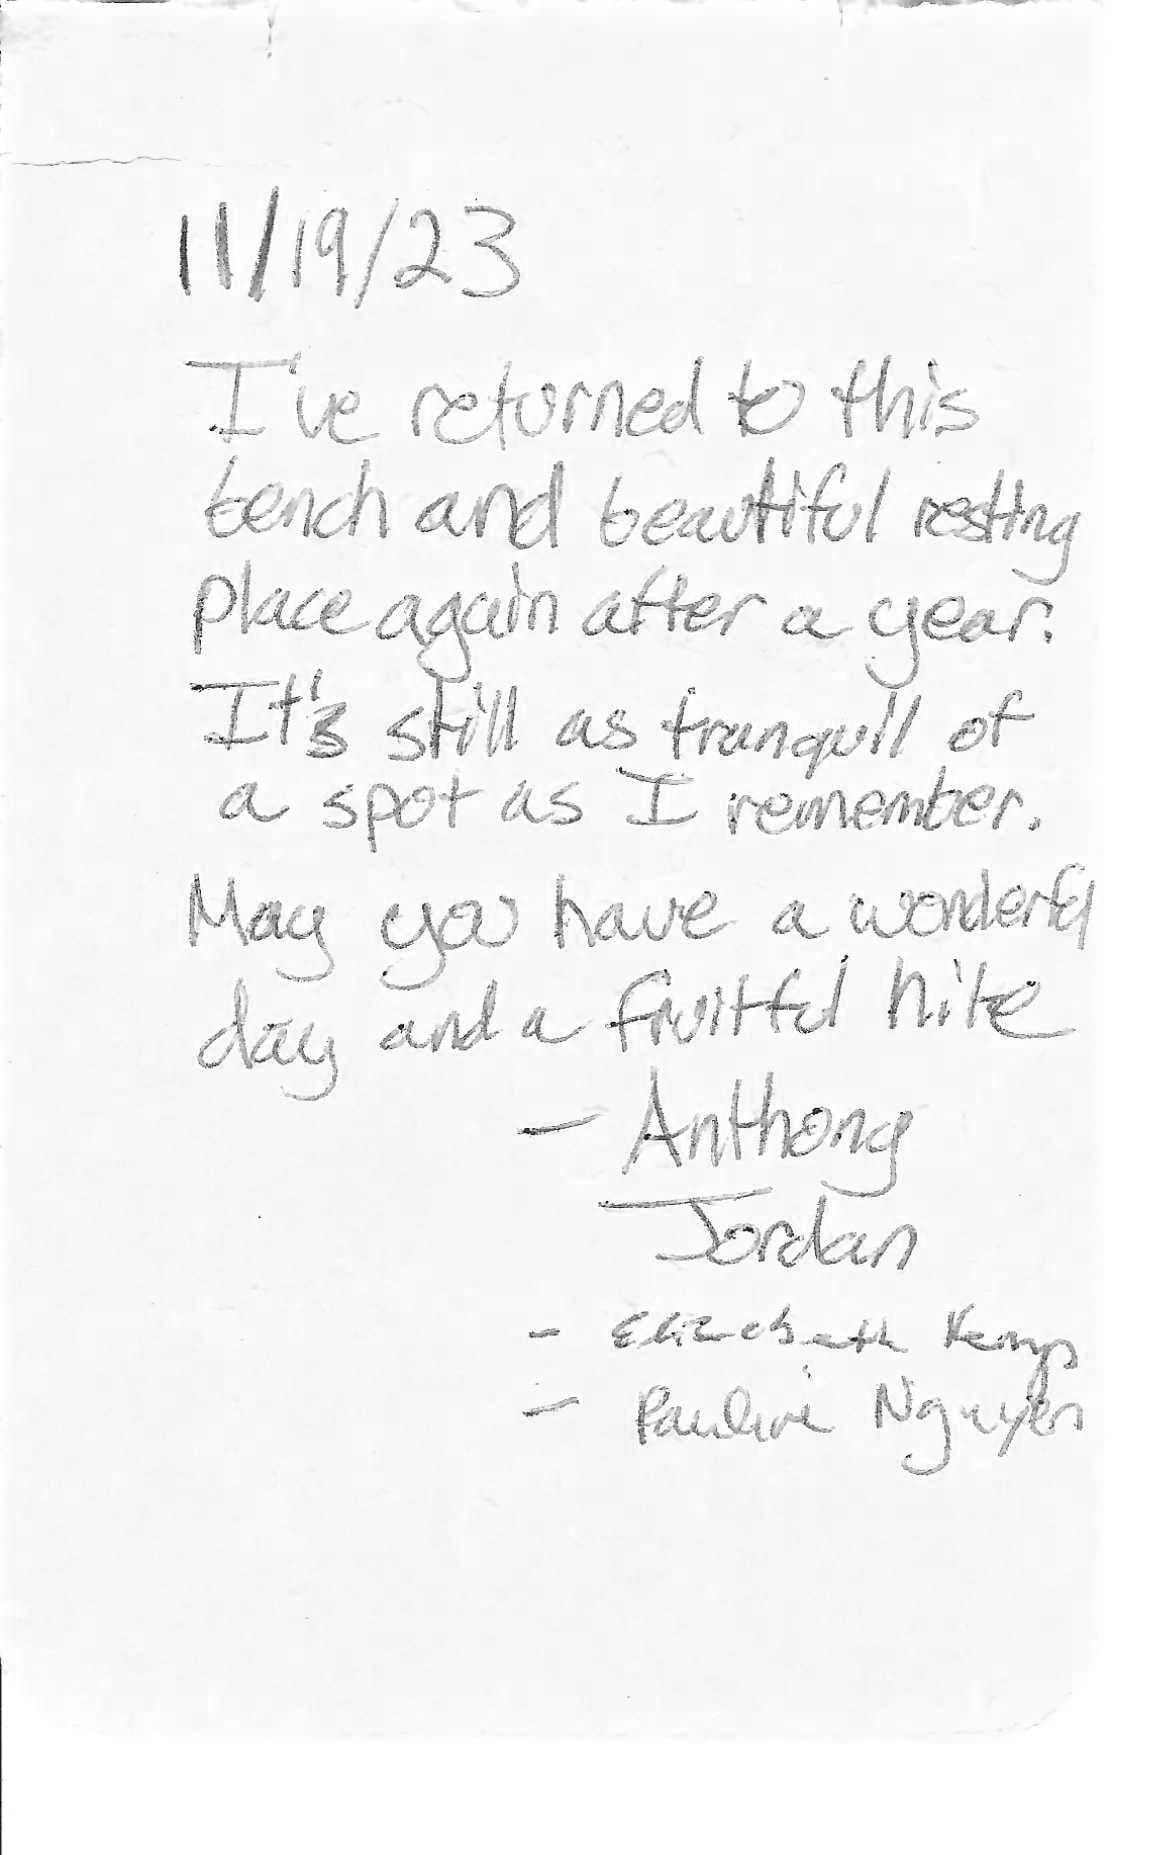 11/19/23
I've returned to this
bench and beautiful resting
place again after a year.
It's still as tranquil of
a spot as I remember.
May you have a wonderful
day and a fruitful nite
- Anthony
Jordan
- Elizabeth Kemp
- Pauline Nguyen